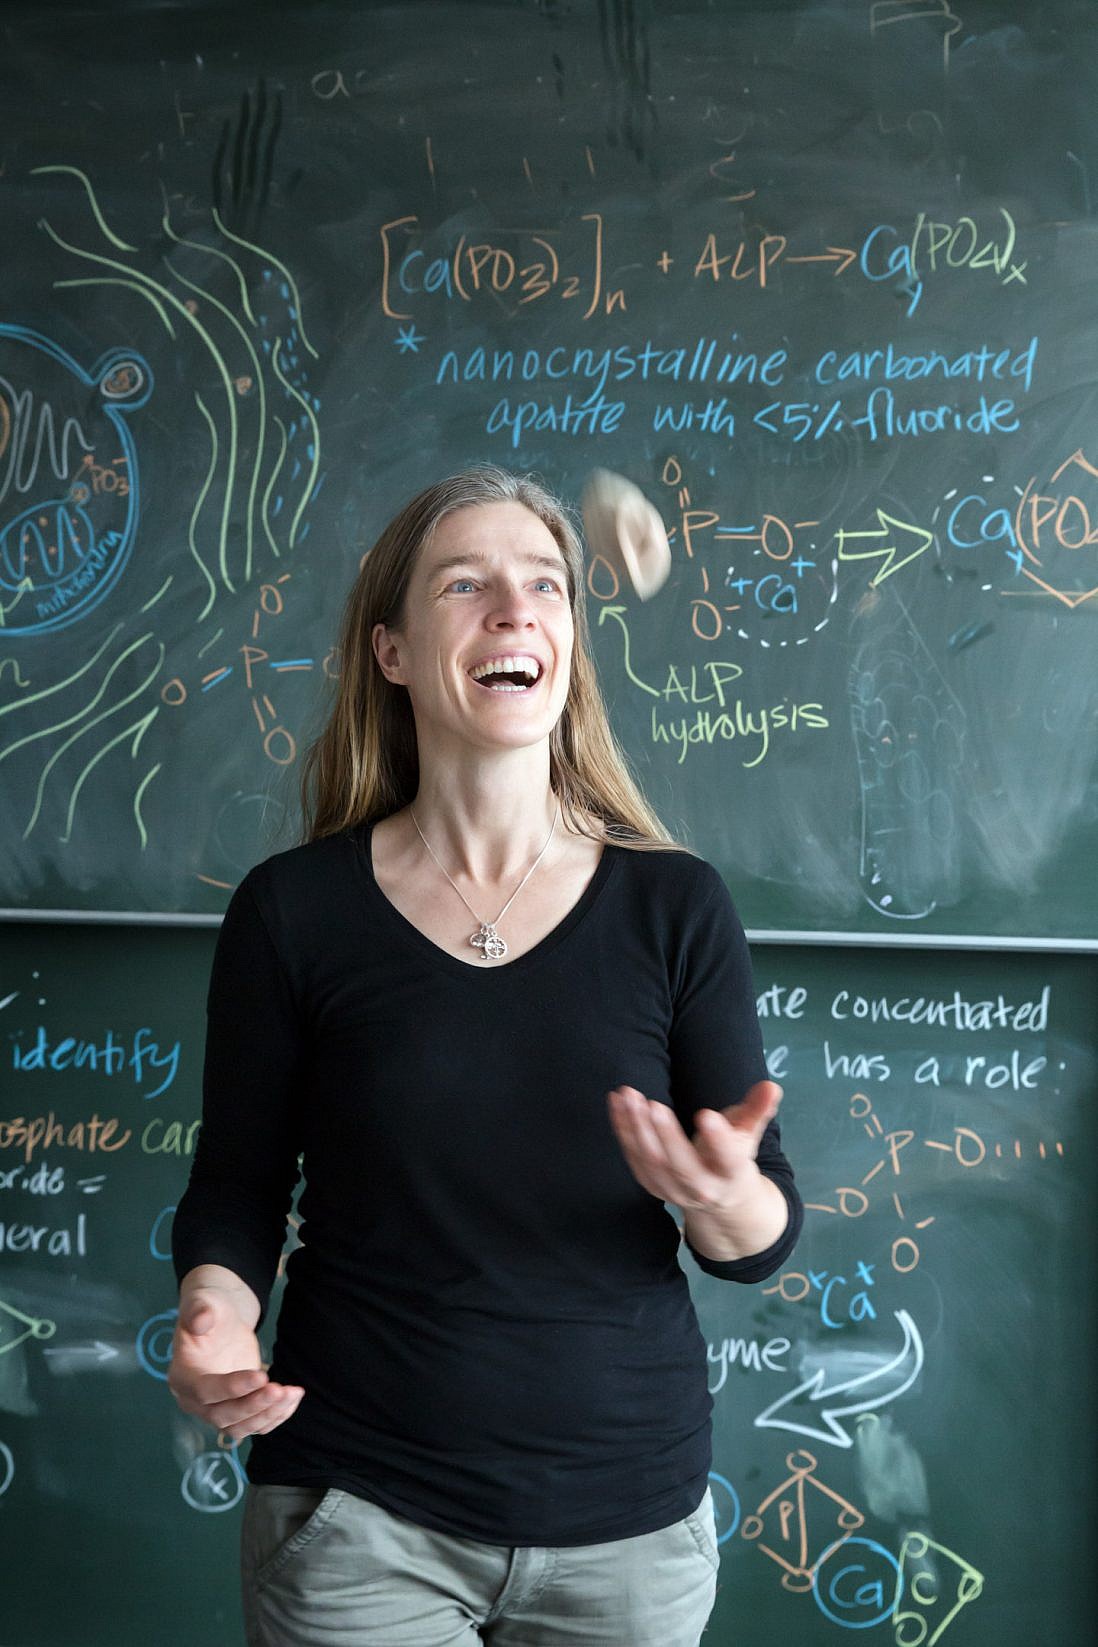 a
[Ca(PO3)2]n + ALP → Cay(PO4)x
* nanocrystalline carbonated
apatite with <5% fluoride
PO3-
mitochondria
O
P = O-
O
+Ca+
O-
Cay(PO4
O-
O - P =
O
ALP
hydrolysis
identify
osphate car
oride =
neral
ate concentrated
e has a role:
O
P - O.....
O
O-
-O +Ca+
yme
P
Ca
C